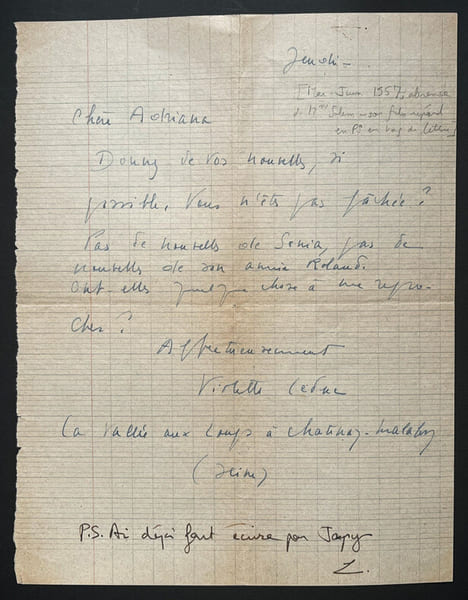 Jeudi –
Mai-Juin 1957, absence
de Mme son fils répond
en PS en bas de lettre
Chère Adriana
Donnez de vos nouvelles, si
possible. Vous n'êtes pas fâchée ?
Pas de nouvelles de Senia, pas de
nouvelles de son amie Roland.
Ont-elles quelque chose à me repro-
cher ?
Affectueusement
Violette Leduc
La Vallée aux Loups à Chatenay-Malabry
(Seine)
P.S. Ai déjà fait écrire par